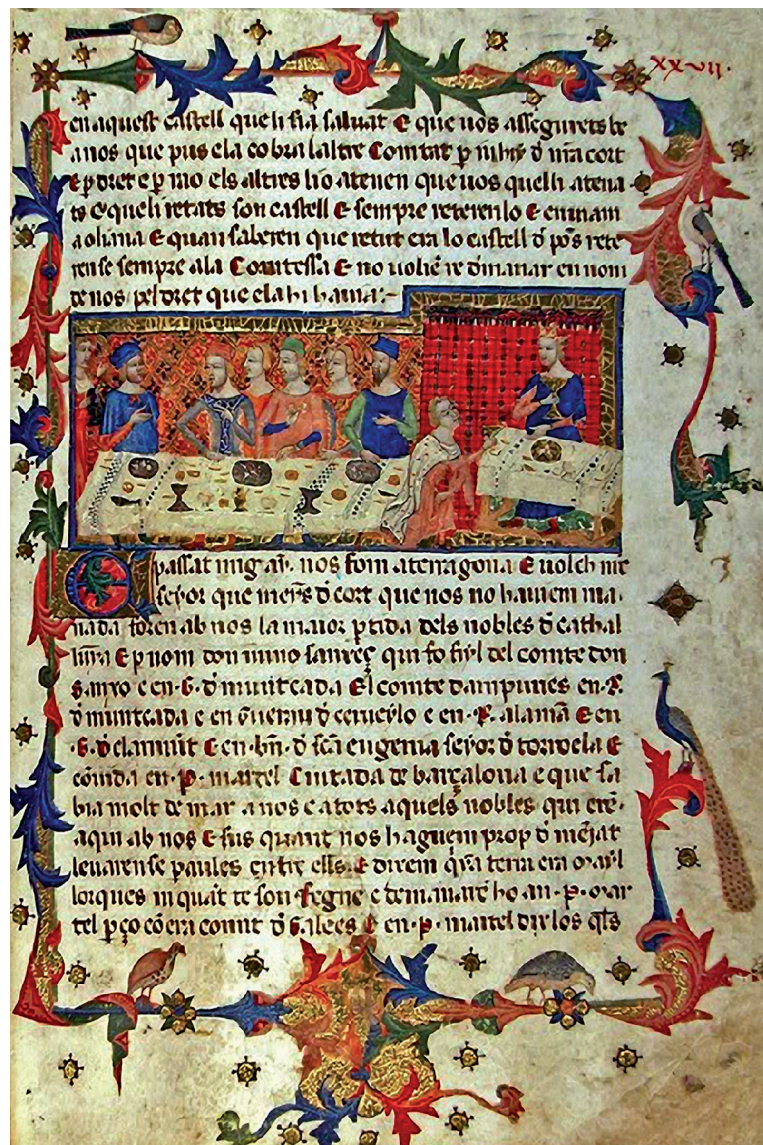 xxvij.
en aquest castell que li sia saluat E que uos assegurets be
a nos que pus ela cobra laltre Comtat p. d nra cort
E p dret e p no els altres ho atenen que uos quelh atena
ts e que li retats son castell E sempre reteren lo E
a oliana E quan saberen que retut era lo castell d pos rete
rense sempre ala Comtessa E no uolie re dmanar en nom
de nos pel dret que ela hi hauia
passat mig an. nos fom a terragona E uolch nre
seyor que mens d cort que nos no hauiem ma
nada foren ab nos la maior ptida dels nobles d cathal
E p nom don nuno sanxeç qui fo fiyl del comte don
sanxo e en .G. d muntcada El comte dampuries en .R.
d muntcada e en Guerau d cerueylo e en .R. alama E en
.G. d claramut E en .bn. d sca eugenia seyor d torroela E
couida en .P. martel Ciutada de barçalona e que sa
bia molt de mar a nos e a tots aquels nobles qui ere
aqui ab nos E sus quant nos haguem prop d meiat
leuarense paules entre ells. E dixem qna terra era mayl
lorques ni quat te son Regne e demanare ho an .P. mar
tel p ço co era comit d Galees E en .P. martel dix los qls